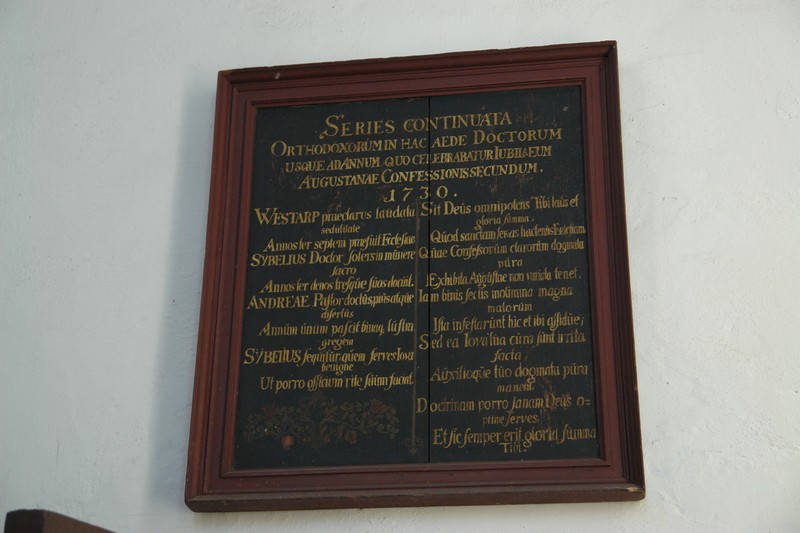 SERIES CONTINUATA
ORTHODOXORUM IN HAC AEDE DOCTORUM
USQUE AD ANNUM QUO CELEBRABATUR IUBILAEUM
AUGUSTANAE CONFESSIONIS SECUNDUM.
1730.
WESTARP praeclarus laudata
sedulitate
Annos ter septem praefuit Ecclesiae
SYBELIUS Doctor solers in munere
sacro
Annos ter denos tresque suos docuit.
ANDREAE Pastor doctus pius atque
disertus
Annum unum pascit binaq lustra
gregem
SYBELIUS sequitur quem serves Iova
benigne
Ut porro officium rite suum faciat.
Sit Deus omnipotens Tibi laus et
gloria summa.
Quod sanctam servas hactenus
Quae Confessorum clarorum dogmata
pura
Exhibita Augustae non variata tenet.
Iam binis seclis molimina magna
malorum
Ista infestarunt hic et ibi assidue;
Sed ea Iova tua cura sunt irrita
facta;
Auxilioque tuo dogmata pura
manent.
Doctrinam porro sanam Deus o=
ptime serves
Et sic semper erit gloria summa
Tibi.